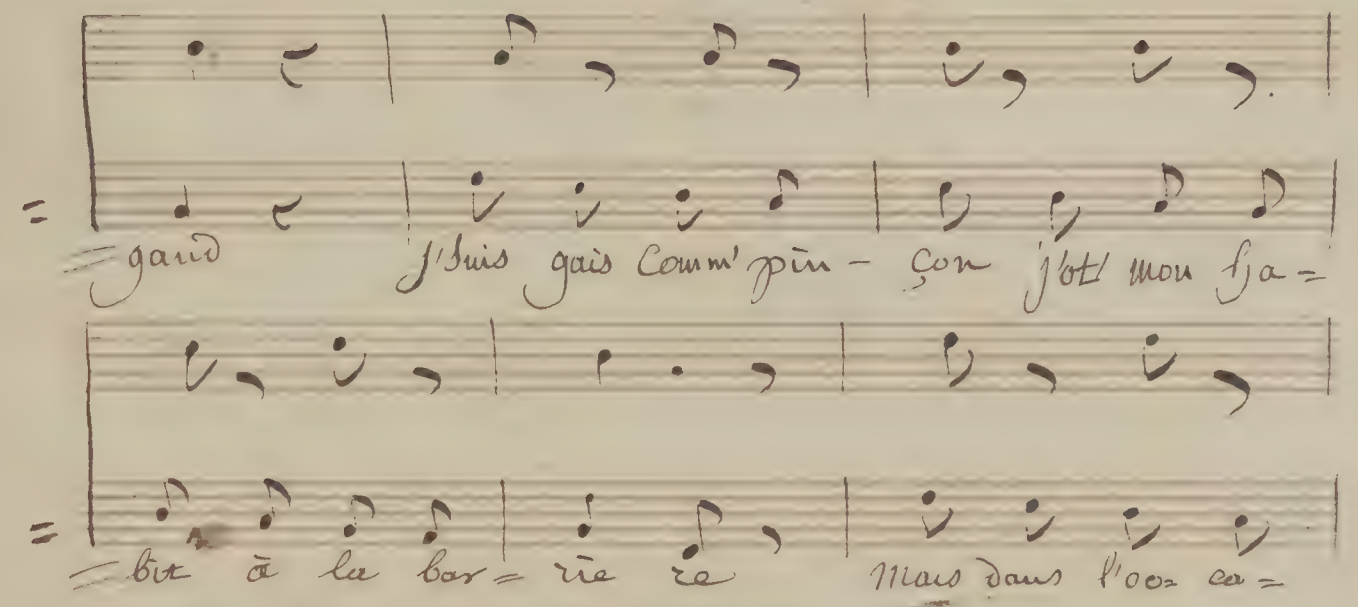 = gand j'suis gais Comm' pin - çon j'ot' mon ha =
= bit à la bar = riè re mais dans l'oc = ca =